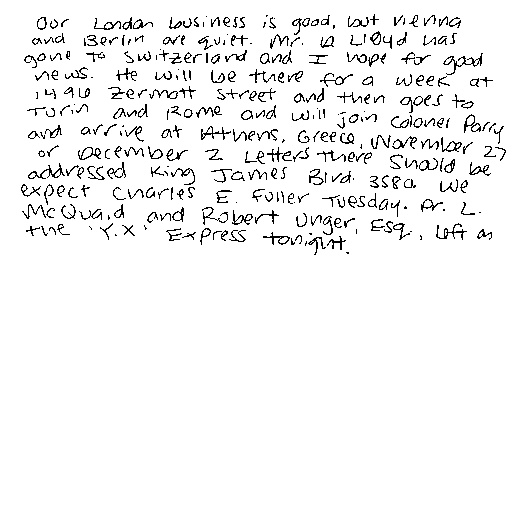 Our London business is good, but Vienna
and Berlin are quiet. Mr. D Lloyd has
gone to Switzerland and I hope for good
news. He will be there for a week at
1496 Zermott Street and then goes to
Turin and Rome and will join Colonel Parry
and arrive at Athens, Greece, November 27
or December 2 Letters there Should be
addressed King James Blvd. 3580. We
expect Charles E. Fuller Tuesday. Dr. L.
McQuaid and Robert Unger, Esq., left on
the 'Y.X.' Express tonight.